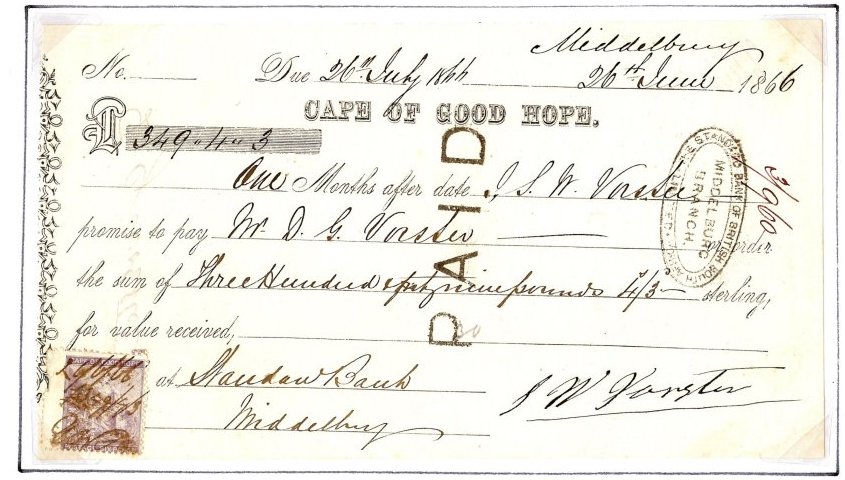 Middelburg
No. Due 26th July 1866 26th June 1866
CAPE OF GOOD HOPE.
£ 349 " 4 " 3
One Months after date I, S. W. Vorster
promise to pay Mr D. G. Vorster or order
the sum of Three Hundred & forty nine pounds 4/3 sterling,
for value received,
at Standard Bank
Middelburg
S W Vorster
PAID
STANDARD BANK OF BRITISH SOUTH AFRICA LIMITED
MIDDELBURG
BRANCH.
3/900
CAPE OF GOOD HOPE